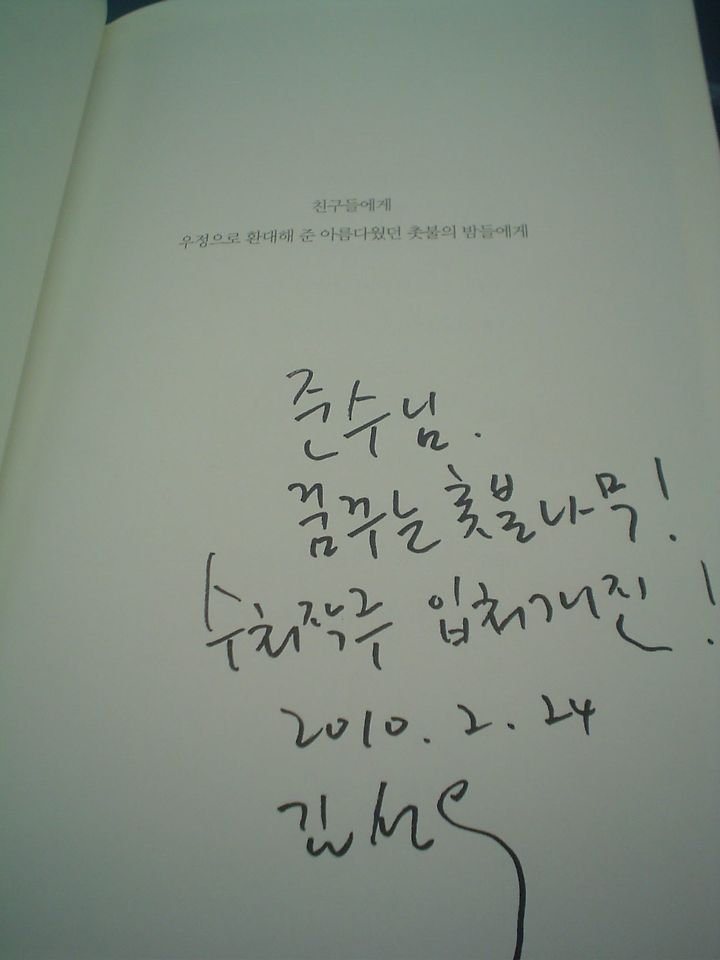 친구들에게
우정으로 환대해 준 아름다웠던 촛불의 밤들에게
준수님.
꿈꾸는 촛불나무!
수처작주 입처개진!
2010. 2. 24
김선우